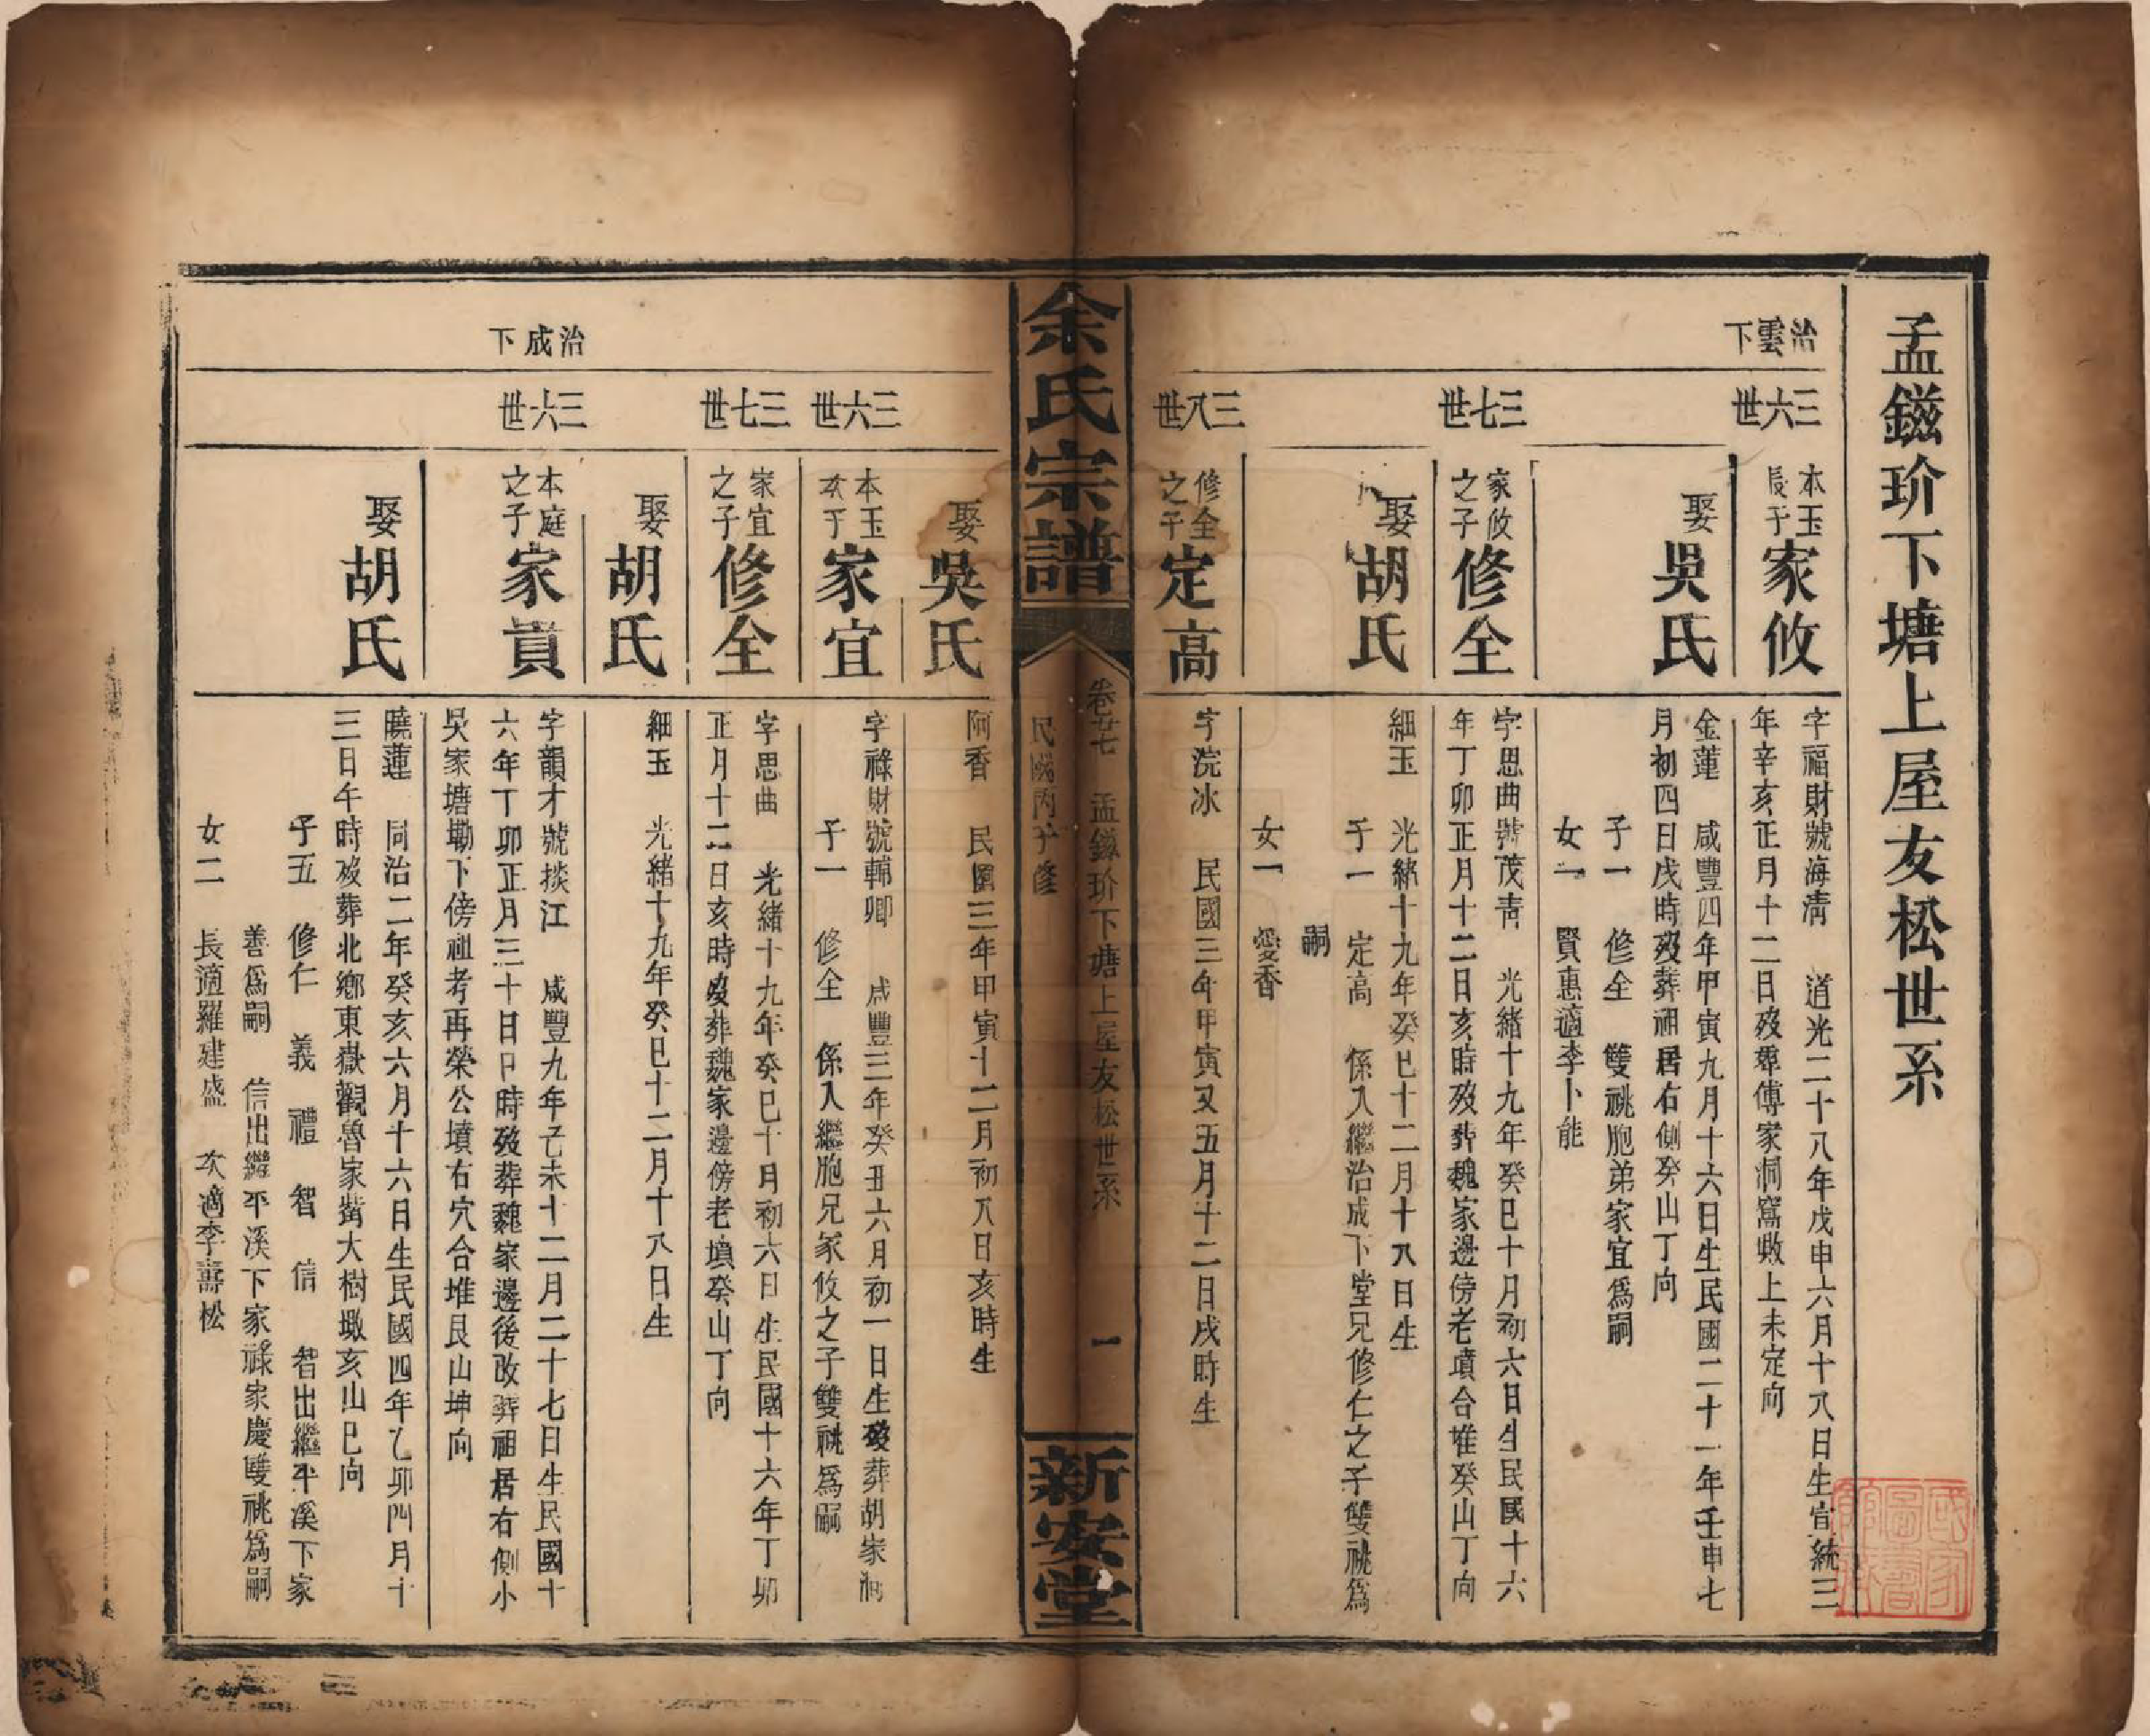 孟鎡玠下塘上屋友松世系
治雲下
三六世
本玉長子家攸
字福財號海清 道光二十八年戊申六月十八日生宣統三
年辛亥正月十二日歿葬傅家洞窩墈上未定向
娶吳氏
金蓮 咸豐四年甲寅九月十六日生民國二十一年壬申七
月初四日戌時歿葬祖居右側癸山丁向
子一 修全 雙祧胞弟家宜爲嗣
女一 賢惠適李卜能
三七世
家攸之子修全
字思曲號茂青 光緒十九年癸巳十月初六日生民國十六
年丁卯正月十二日亥時歿葬魏家邊傍老墳合堆癸山丁向
娶胡氏
細玉 光緒十九年癸巳十二月十八日生
子一 定高 係入繼治成下堂兄修仁之子雙祧爲
嗣
女一 愛香
三八世
修全之子定高
字浣冰 民國三年甲寅又五月十二日戌時生
余氏宗譜
卷廿七 孟鎡玠下塘上屋友松世系 一
民國丙子修
新安堂
娶吳氏
阿香 民國三年甲寅十二月初八日亥時生
三六世
本玉次子家宜
字祿財號輔卿 咸豐三年癸丑六月初一日生歿葬胡家洞
子一 修全 係入繼胞兄家攸之子雙祧爲嗣
三七世
家宜之子修全
字思曲 光緒十九年癸巳十月初六日生民國十六年丁卯
正月十二日亥時歿葬魏家邊傍老墳癸山丁向
娶胡氏
細玉 光緒十九年癸巳十二月十八日生
治成下
三六世
本庭之子家貢
字韻才號掞江 咸豐九年己未十二月二十七日生民國十
六年丁卯正月三十日日時歿葬魏家邊後改葬祖居右側小
吳家塘墈下傍祖考再榮公墳右穴合堆艮山坤向
娶胡氏
曉蓮 同治二年癸亥六月十六日生民國四年乙卯四月十
三日午時歿葬北鄉東嶽觀魯家嶲大樹墩亥山巳向
子五 修仁 義 禮 智 信 智出繼平溪下家
善爲嗣 信出繼平溪下家祿家慶雙祧爲嗣
女二 長適羅建盛 次適李壽松
國家圖書館藏